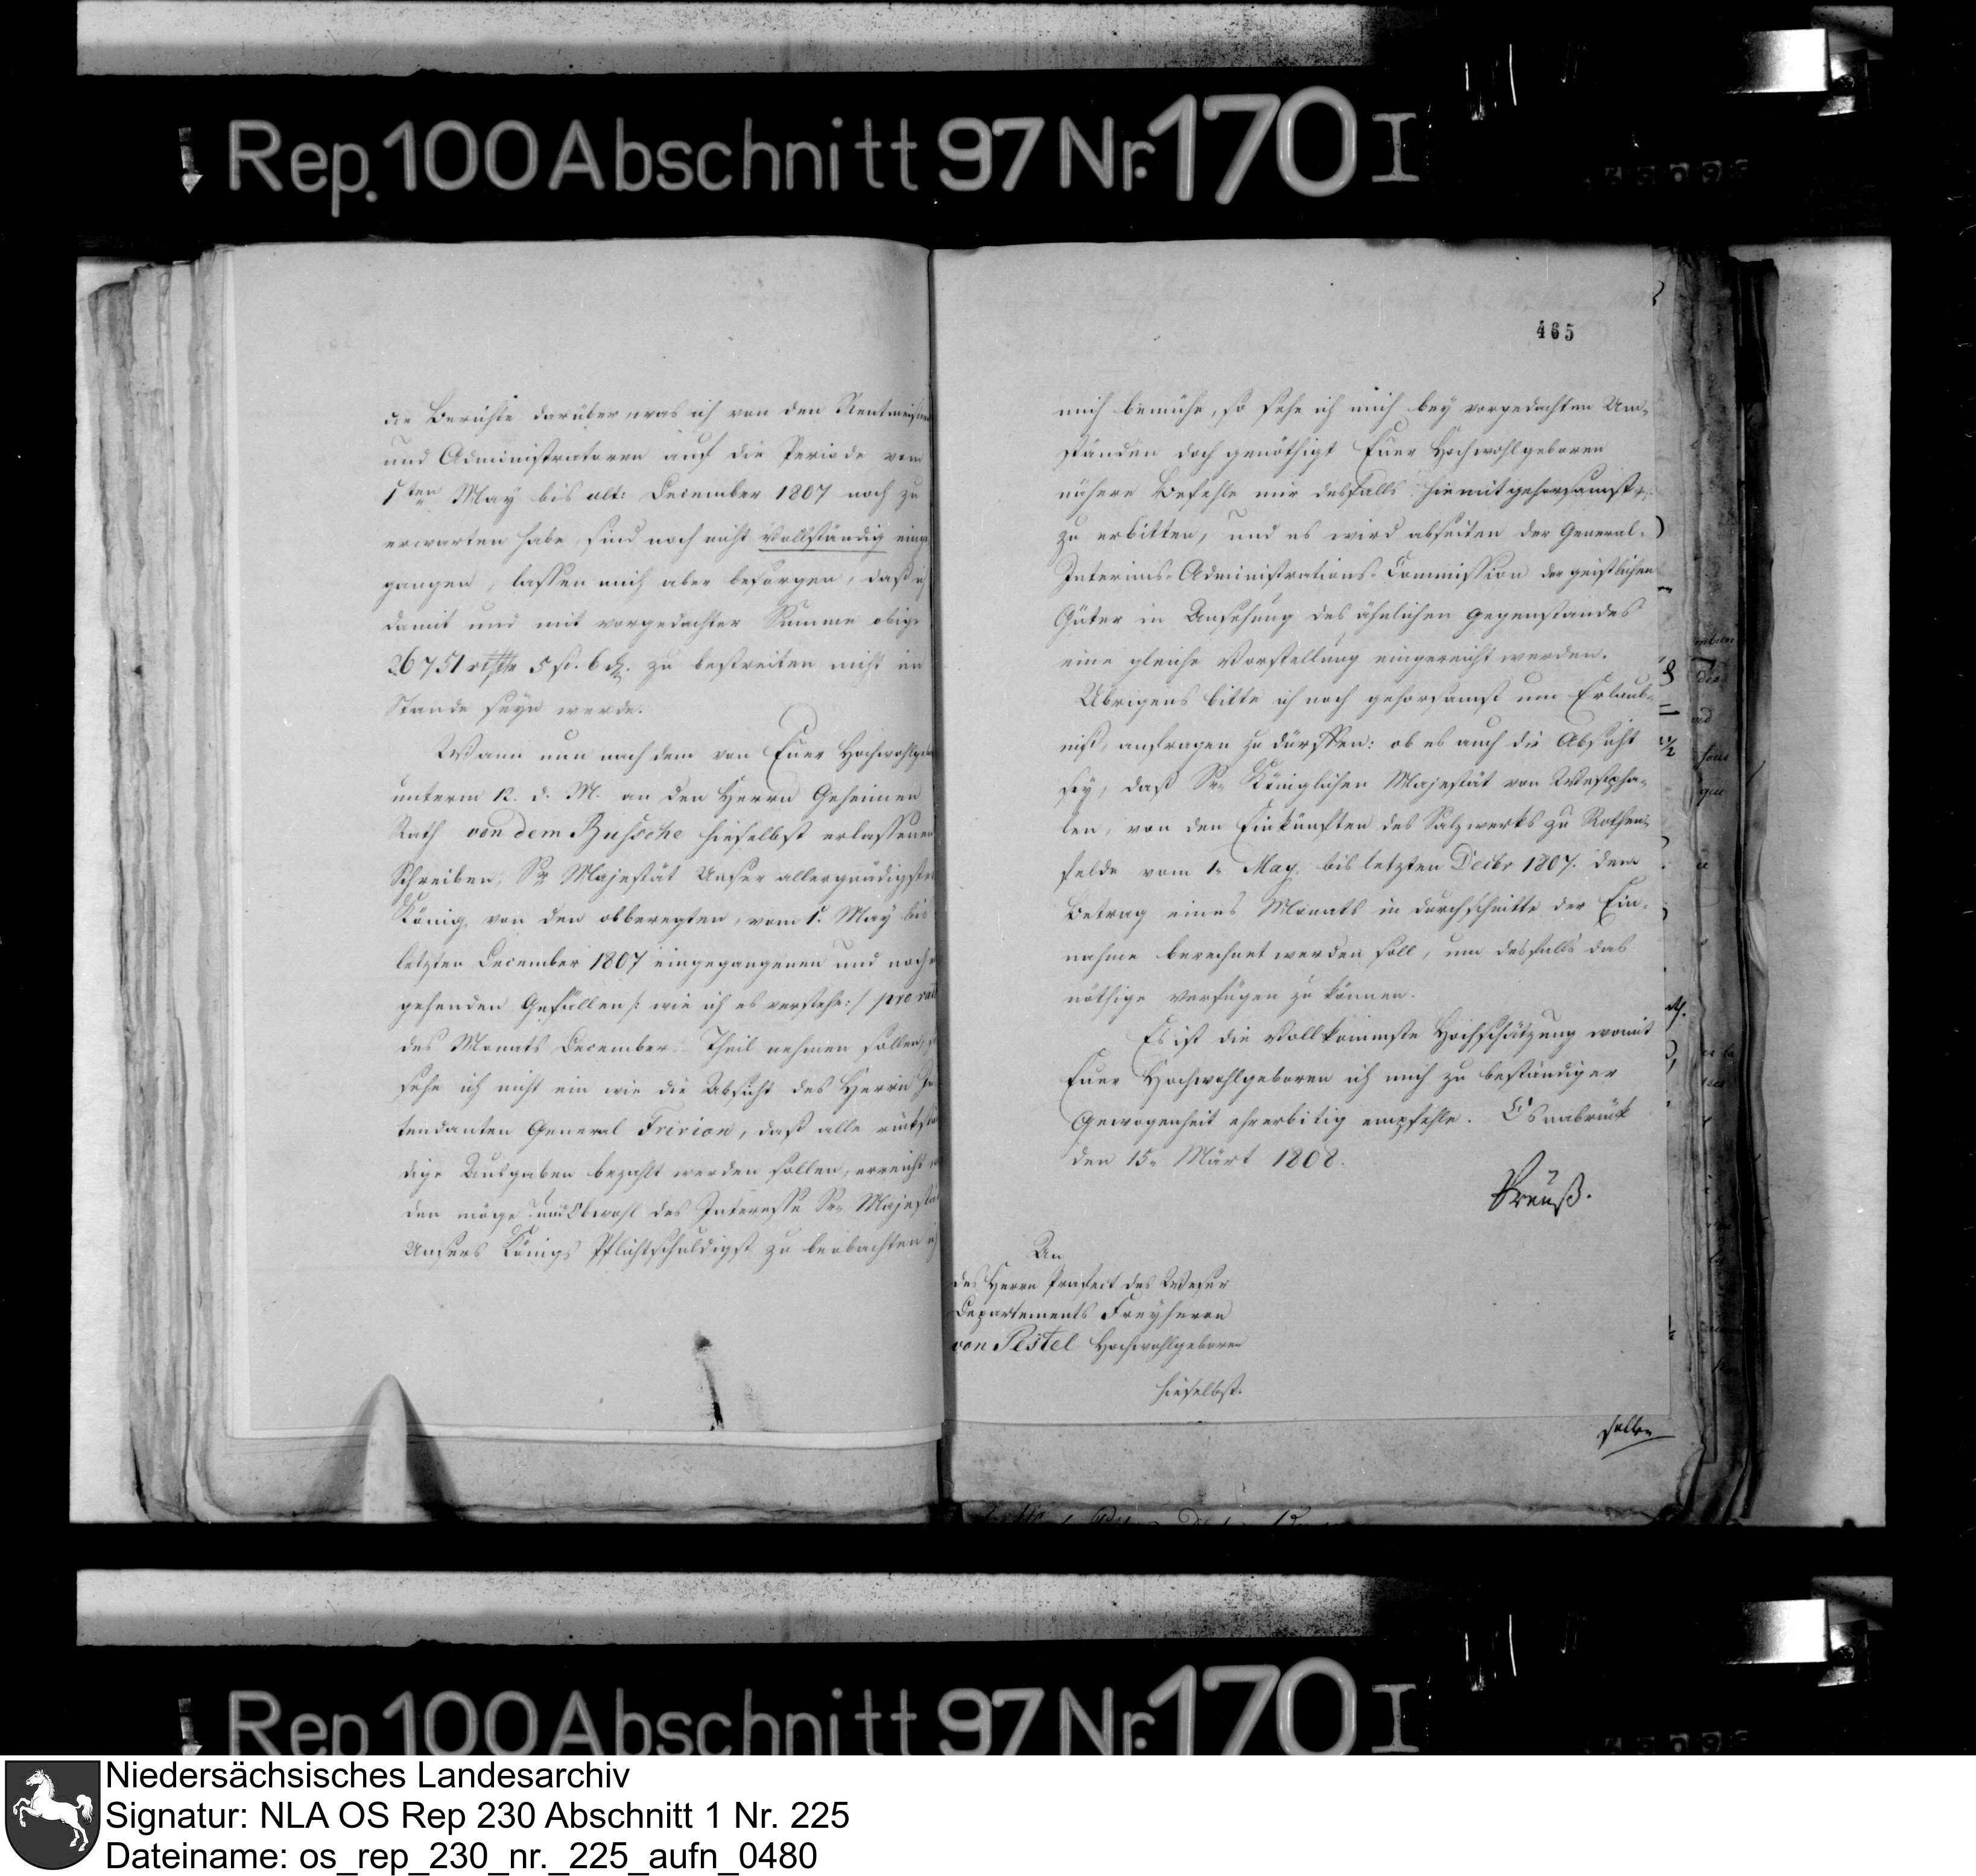 Rep. 100 Abschnitt 97 Nr. 170 I
die Berichte darüber, was ich von den Rentmeistern
und Administratoren auf die Periode vom
1ten May bis ult: December 1807 noch zu
erwarten habe, sind noch nicht vollständig einge
gangen, lassen mich aber besorgen, daß ich
damit und mit vorgedachter Summe obige
26751 rthlr 5 ß. 6 d. zu bestreiten nicht im
Stande seyn werde.
Wann nun nach dem von Euer Hochwohlgeb
unterm 12. d. M. an den Herrn Geheimen
Rath von dem Bussche hieselbst erlassenen
Schreiben, Se Majestät Unser allergnädigster
König, von den obberegten, vom 1. May bis
letzten December 1807 eingegangenen und noch
gehenden Gefällen /: wie ich es verstehe :/ pro rata
des Monats December Theil nehmen sollen, so
sehe ich nicht ein wie die Absicht des Herrn In
tendanten General Fririon, daß alle rückstän
dige Ausgaben bezahlt werden sollen, erreicht
den möge und Obwohl das Interesse Sr Majestät
Unsers Königs Pflichtschuldigst zu beobachten ich
465
mich bemühe, so sehe ich mich bey vorgedachten Um-
ständen doch genöthigt Euer Hochwohlgeboren
nähere Befehle mir desfalls hiemit gehorsamst
zu erbitten, und es wird abseiten der General-
Interims-Administrations-Commission der geistlichen
Güter in Ansehung des ähnlichen Gegenstandes
eine gleiche Vorstellung eingereicht werden.
Übrigens bitte ich noch gehorsamst um Erlaub-
niß, anfragen zu dürffen: ob es auch die Absicht
sey, daß Sr Königlichen Majestät von Westpha-
len, von den Einkünften des Salzwerks zu Rothen-
felde vom 1n May bis letzten Decbr 1807. dem
Betrag eines Monats in durchschnitte der Ein-
nahme berechnet werden soll, um desfalls das
nöthige verfügen zu können.
Es ist die vollkommste Hochschätzung womit
Euer Hochwohlgeboren ich mich zu beständiger
Gewogenheit ehrerbitig empfehle. Osnabrück
den 15n Märt 1808.
Preuß.
An
des Herrn Praefect des Weser
Departements Freyherrn
von Pestel Hochwohlgeboren
hieselbst.
selben
Rep 100 Abschnitt 97 Nr. 170 I
Niedersächsisches Landesarchiv
Signatur: NLA OS Rep 230 Abschnitt 1 Nr. 225
Dateiname: os_rep_230_nr._225_aufn_0480